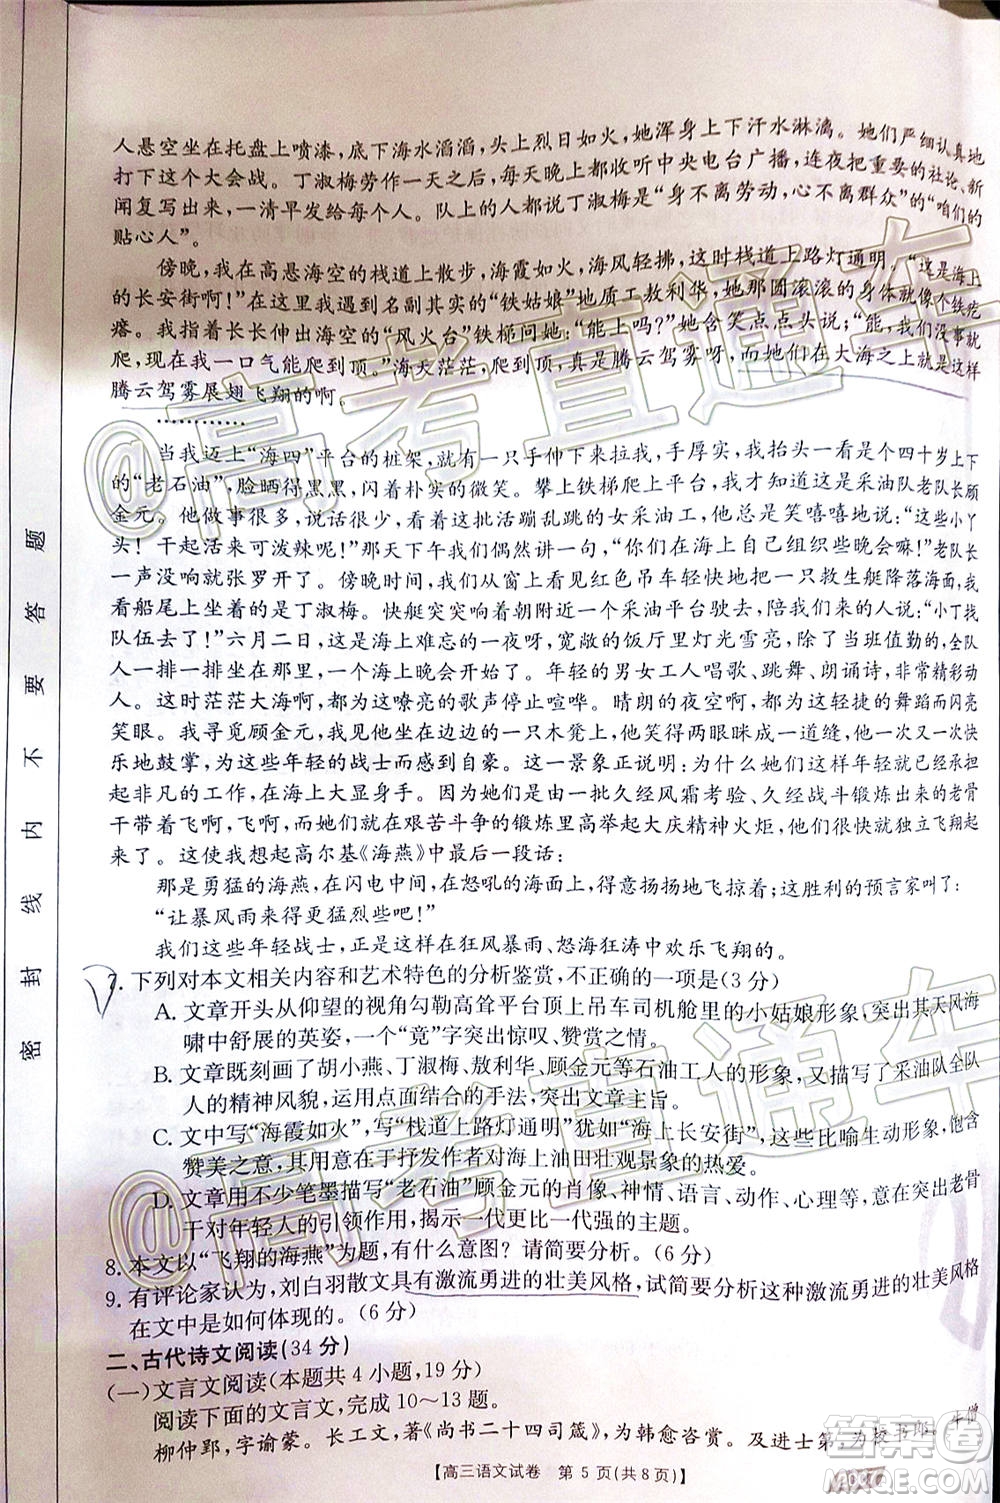 人悬空坐在托盘上喷漆，底下海水滔滔，头上烈日如火，她浑身上下汗水淋漓。她们严细认真地
打下这个大会战。丁淑梅劳作一天之后，每天晚上收听中央电台广播，连夜把重要的社论、新
闻复写出来，一清早发给队里每个人看。队上的人都说丁淑梅是“身不离劳动，心不离群众”的“咱们的
贴心人”。
傍晚，我在高悬海空的栈道上散步，海霞如火，海风轻拂，这时栈道上路灯通明。“这是海上
的长安街啊！”在这里我遇到了名副其实的“铁姑娘”地质工敖利华，她那圆滚滚的身体就像个铁疙
瘩。我指着长长伸出海空的“风火台”铁梯问她：“能上吗？”她含笑点点头说：“能，我们没事就
爬，现在我一口气能爬到顶。”海天茫茫，爬到顶，真是腾云驾雾呀，而她们在大海之上就是这样
腾云驾雾展翅飞翔的啊。
…………
当我迈上“海四”平台的桩架，就有一只手伸下来拉我，手厚实，我抬头一看是个四十岁上下
的“老石油”，脸晒得黑黑，闪着朴实的微笑。攀上铁梯爬上平台，才知道这是采油队老队长顾
金元。他做事很多，说话很少，看着活蹦乱跳的女采油工，他总是笑嘻嘻地说：“这些小丫
头！干起活来可泼辣呢！”那天下午她们偶然讲一句：“我们在海上自己组织些晚会嘛！”老队长
一声不响就张罗开了。傍晚时间，我们从窗上看到红色吊车轻快地把一只采油艇降落海面，我
看船尾上坐着的是丁淑梅。快艇突突地向远处一个采油平台驶去，旁边的人说：“小丁找
队伍去了！”六月二日，这是海上难忘的一夜呀，宽敞的饭厅里灯光雪亮，除了当班值勤的，全队
人一排一排坐在那里，真是一个海上晚会呀。年轻的男女工人唱歌、跳舞、朗诵诗，非常精彩动
人。这时茫茫大海啊，都为这嘹亮的歌声停止喧哗。晴朗的夜空啊，都为这轻捷的舞蹈而闪亮
笑眼。我寻觅顾金元，原来他坐在后边一只木凳上，他笑得两眼眯成缝，他那样快活、那样快
乐地鼓掌，为这些年轻的战士而感到自豪。这一景象正说明：为什么她们这样年轻，却能担
起非凡的工作，在海上大显身手。因为她们是由一批久经风霜考验、久经战斗锻炼出来的老骨
干带着飞啊，飞啊，她们在艰苦斗争的锻炼里高举起大庆精神火炬，她们很快就独立飞翔起
来了。这使我想起高尔基《海燕》中最后一段话：
那是勇猛的海燕，在闪电中间，在怒吼的海面上，得意扬扬地飞掠着；这胜利的预言家叫了：
“让暴风雨来得更猛烈些吧！”
我们这些年轻战士，正是这样在狂风暴雨、怒海狂涛中欢乐飞翔的。
7. 下列对本文相关内容和艺术特色的分析鉴赏，不正确的一项是（3 分）
A. 文章开头从仰望的视角勾勒高耸平台顶上吊车司机舱里的小姑娘形象，突出其天风海
啸中舒展的英姿，一个“竟”字突出惊叹、赞赏之情。
B. 文章既刻画了胡小燕、丁淑梅、敖利华、顾金元等石油工人的形象，又描写了采油队全队
人的精神风貌，运用点面结合的手法，突出文章主旨。
C. 文中写“海霞如火”，写“栈道上路灯通明”犹如“海上长安街”，这些比喻生动形象，饱含
赞美之意，意在于抒发作者对海上油田壮观景象的热爱。
D. 文章用不少笔墨描写“老石油”顾金元的肖像、神情、语言、动作、心理等，意在突出老骨
干对年轻人的引领作用，揭示一代更比一代强的主题。
8. 本文以“飞翔的海燕”为题，有什么意图？请简要分析。（6 分）
9. 有评论家认为，刘白羽散文具有激流勇进的壮美风格，试简要分析这种激流勇进的壮美风格
在文中是如何体现的。（6 分）
二、古代诗文阅读（34 分）
（一）文言文阅读（本题共 4 小题，19 分）
阅读下面的文言文，完成 10～13 题。
柳仲郢，字谕蒙。长工文，著《尚书二十四司箴》，为韩愈咨赏。及进士第，为校书郎。牛僧
【高三语文试卷 第 5 页（共 8 页）】
密 封 线 内 不 要 答 题
@高考直通车
@高考直通车
答案圈